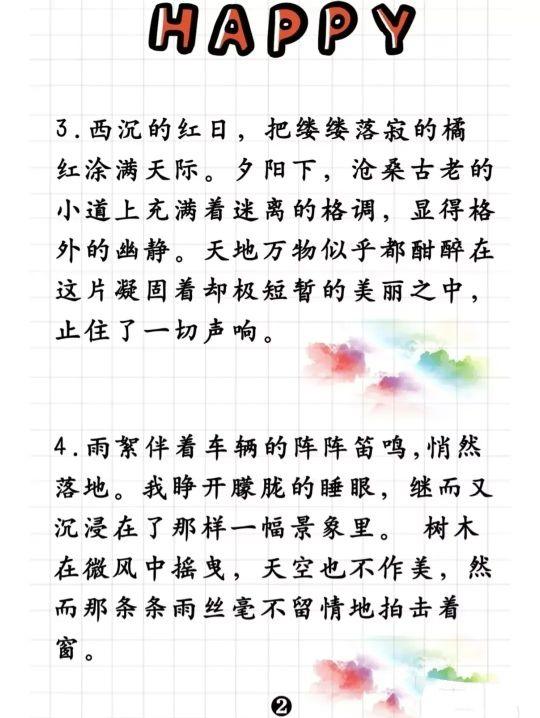 HAPPY
3.西沉的红日，把缕缕落寂的橘
红涂满天际。夕阳下，沧桑古老的
小道上充满着迷离的格调，显得格
外的幽静。天地万物似乎都酣醉在
这片凝固着却极短暂的美丽之中，
止住了一切声响。
4.雨絮伴着车辆的阵阵笛鸣,悄然
落地。我睁开朦胧的睡眼，继而又
沉浸在了那样一幅景象里。 树木
在微风中摇曳，天空也不作美，然
而那条条雨丝毫不留情地拍击着
窗。
2